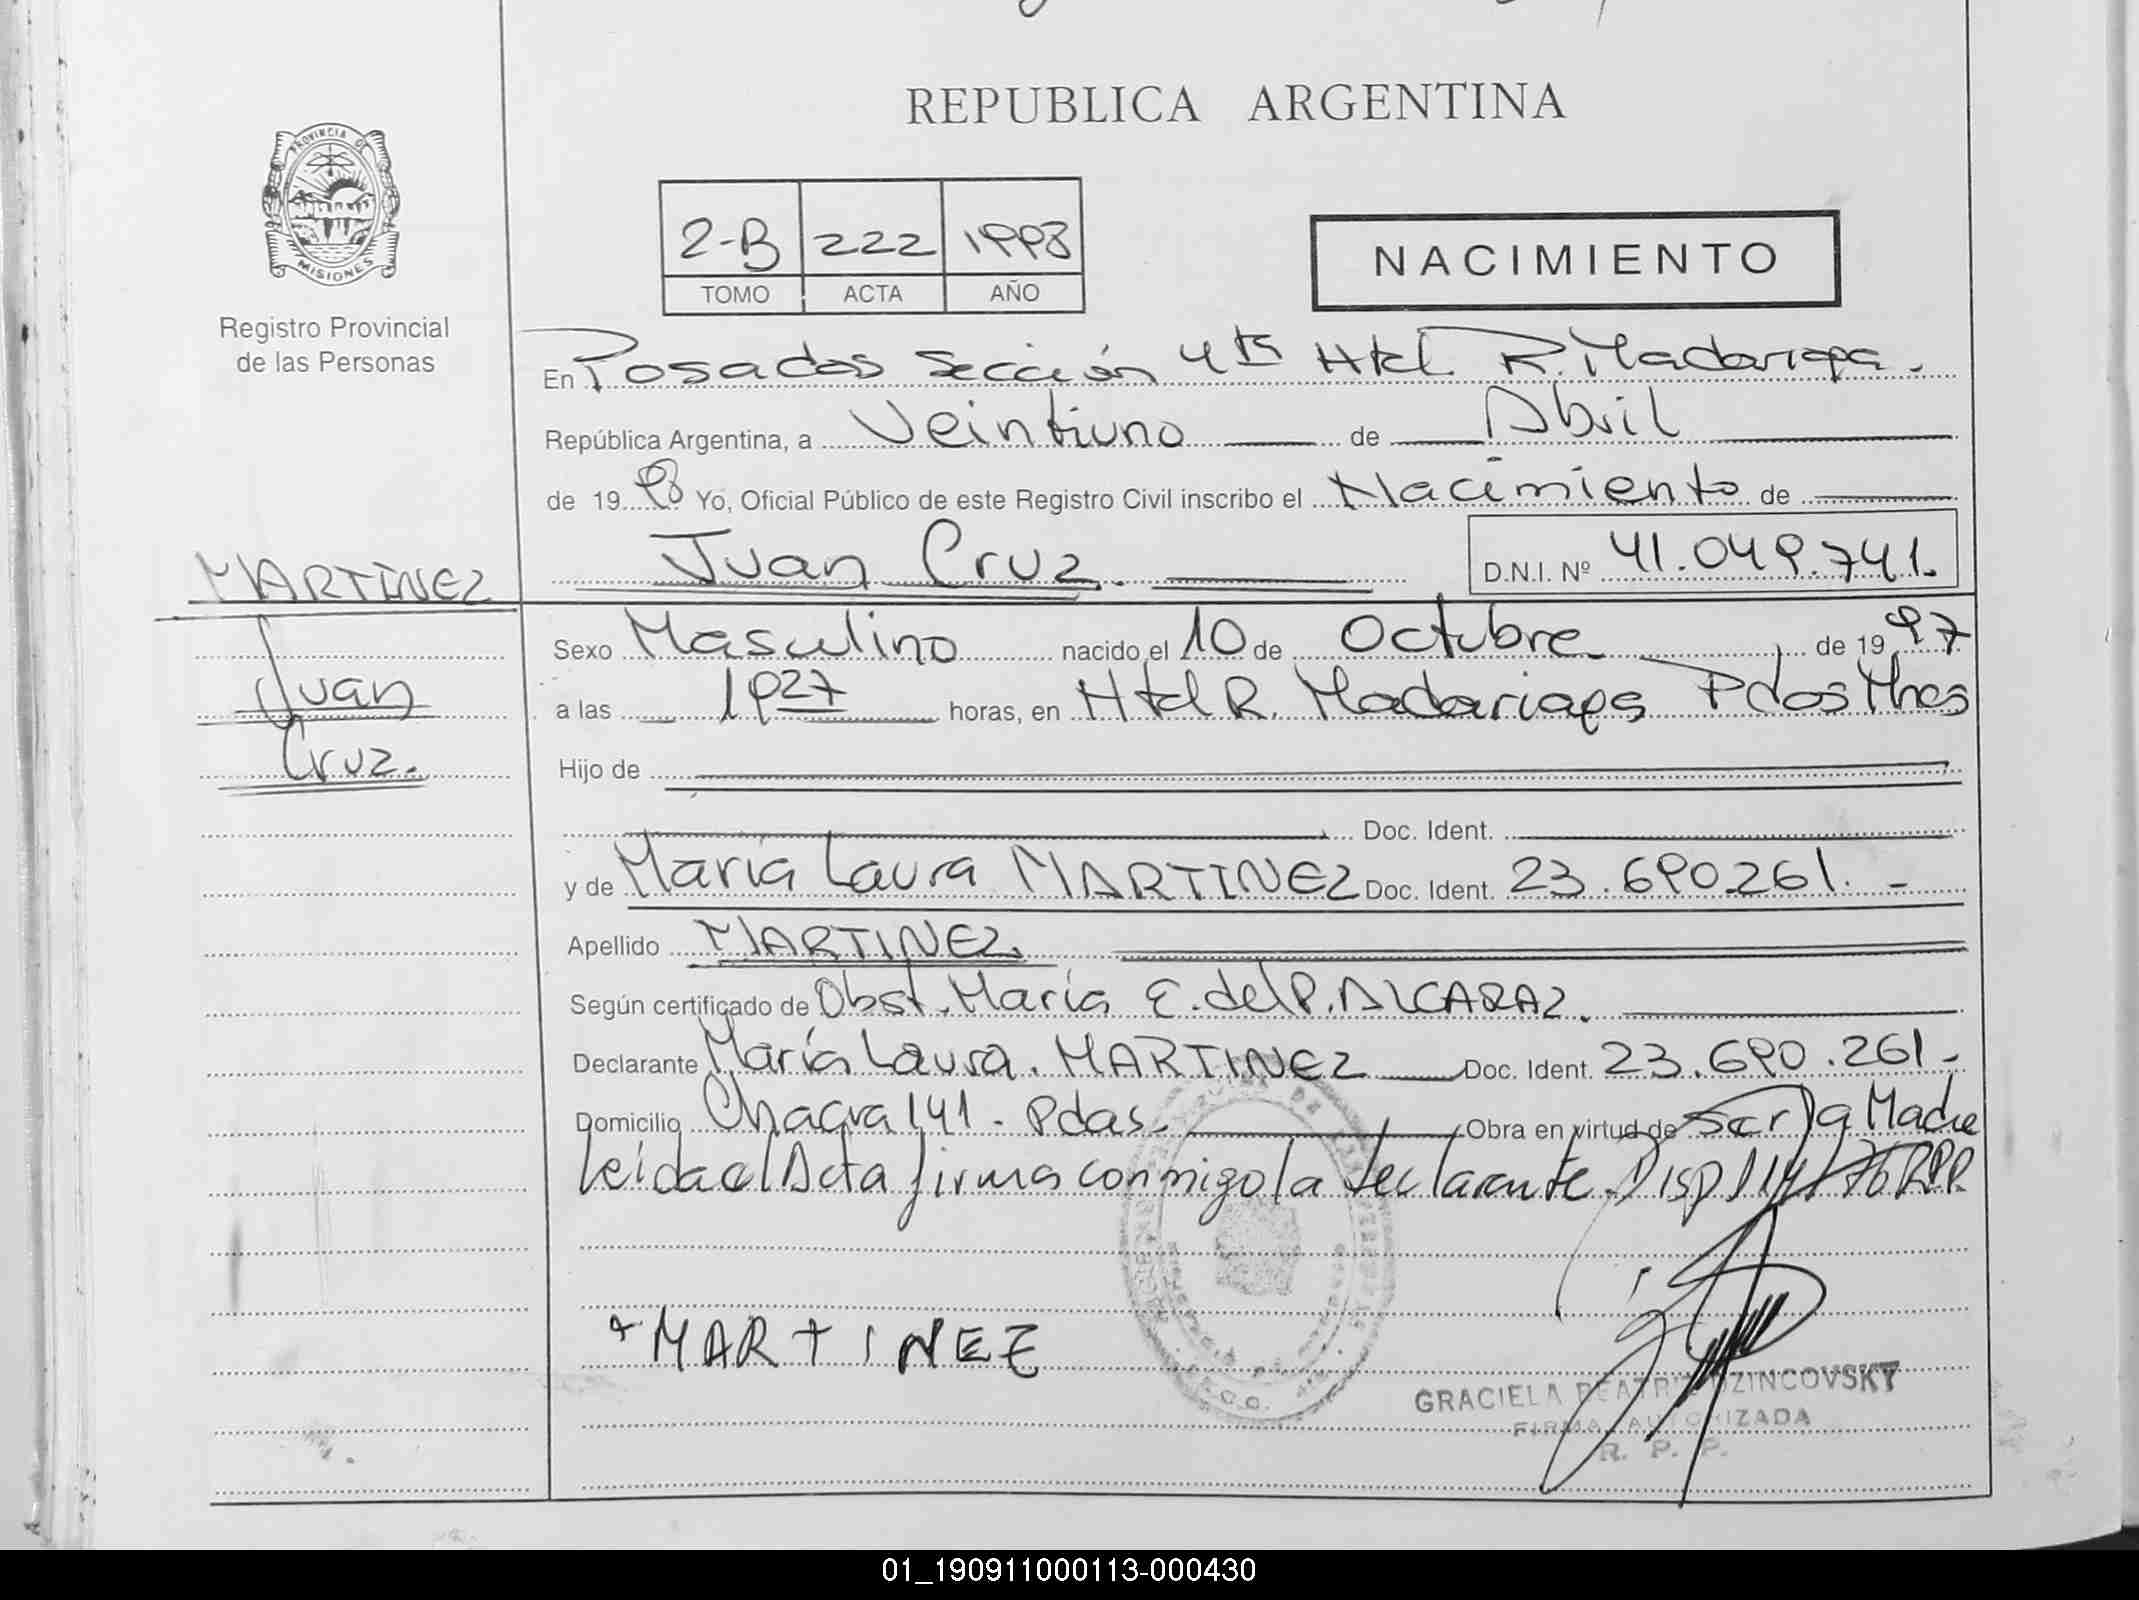 REPUBLICA ARGENTINA
PROVINCIA DE
MISIONES
Registro Provincial
de las Personas
2-B 222 1998
TOMO ACTA AÑO
NACIMIENTO
En Posadas Sección 4ta Htal R. Madariaga.
República Argentina, a Veintiuno de Abril
de 1998 Yo, Oficial Público de este Registro Civil inscribo el Nacimiento de
Juan Cruz. D.N.I. Nº 41.049.741.
MARTINEZ
Juan
Cruz.
Sexo Masculino nacido el 10 de Octubre de 1997
a las 1927 horas, en Htal R. Madariaga Pdas Mnes
Hijo de
Doc. Ident.
y de María Laura MARTINEZ Doc. Ident. 23.690.261.-
Apellido MARTINEZ.
Según certificado de Obst. María E. del P. ALCARAZ.
Declarante María Laura. MARTINEZ Doc. Ident. 23.690.261-
Domicilio Chacra 141 - Pdas. Obra en virtud de Ser la Madre
leida el Acta firma conmigo la declarante. Disp 114/76 RPP.
MARTINEZ
GRACIELA BEATRIZ OZINCOVSKY
FIRMA AUTORIZADA
R. P. P.
01_190911000113-000430